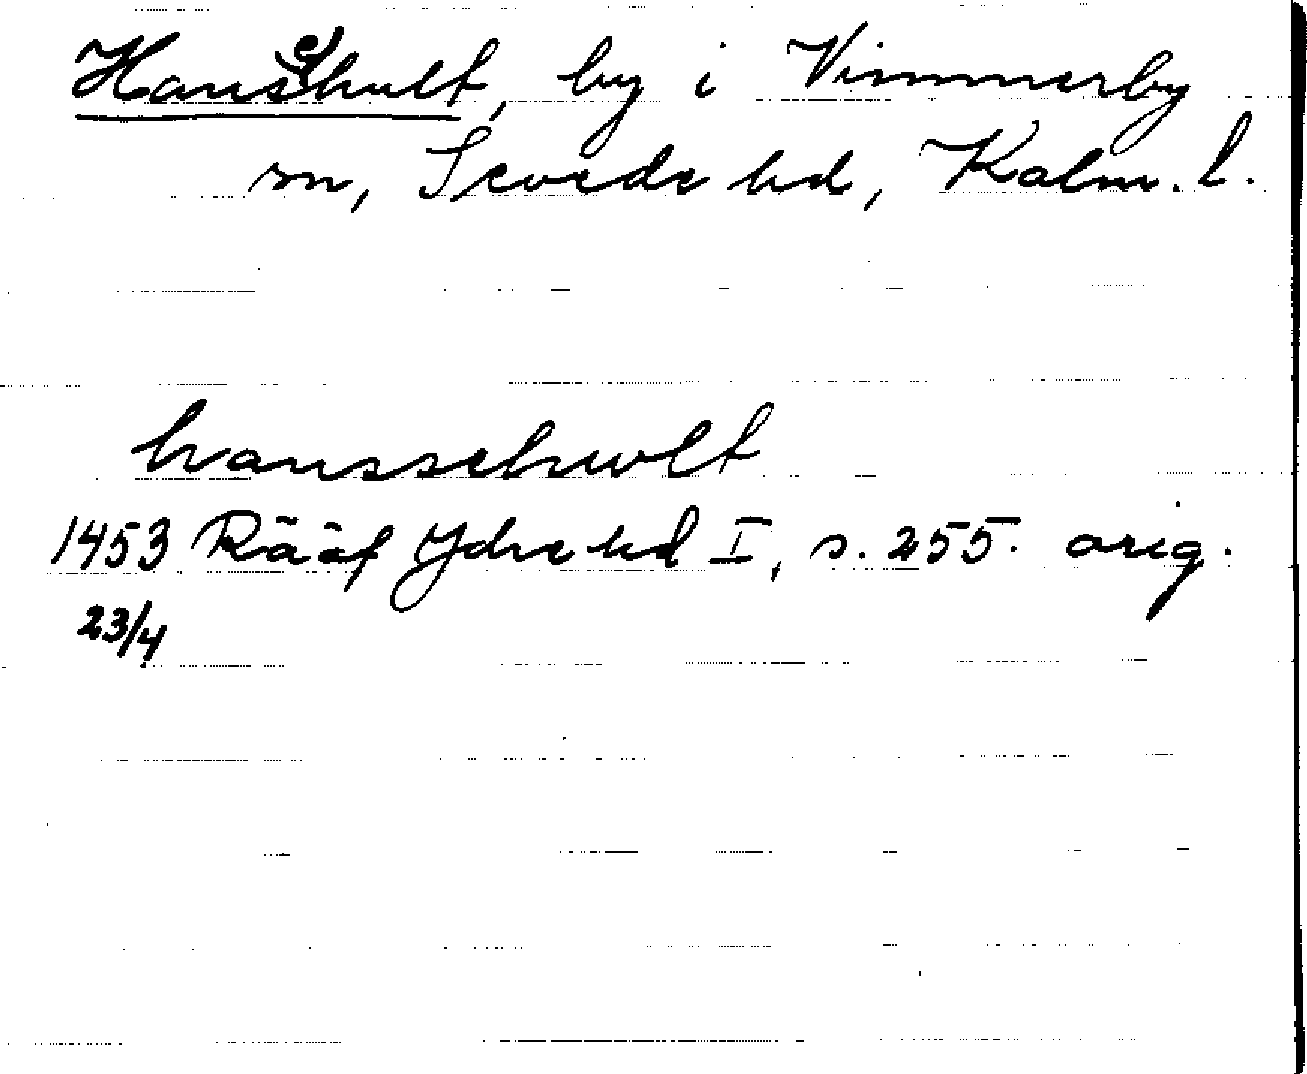 Hanseshult, by i Vimmerby
sn, Sevede hd, Kalm. l.
hansschwlt
1453 Rääf Ydre hd I, s. 255. orig.
23/4